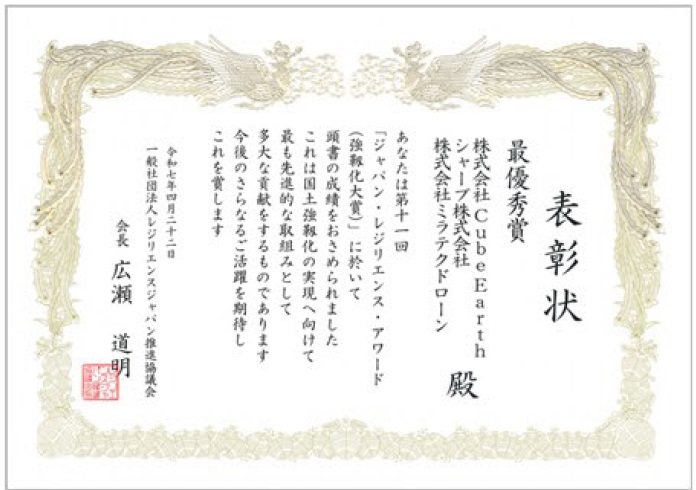 表彰状
最優秀賞
株式会社CubeEarth
シャープ株式会社
株式会社ミラテクドローン
殿
あなたは第十一回
「ジャパン・レジリエンス・アワード
（強靱化大賞）」に於いて
頭書の成績をおさめられました
これは国土強靱化の実現へ向けて
最も先進的な取組みとして
多大な貢献をするものであります
今後のさらなるご活躍を期待し
これを賞します
令和七年四月二十二日
一般社団法人レジリエンスジャパン推進協議会
会長 広瀬 道明